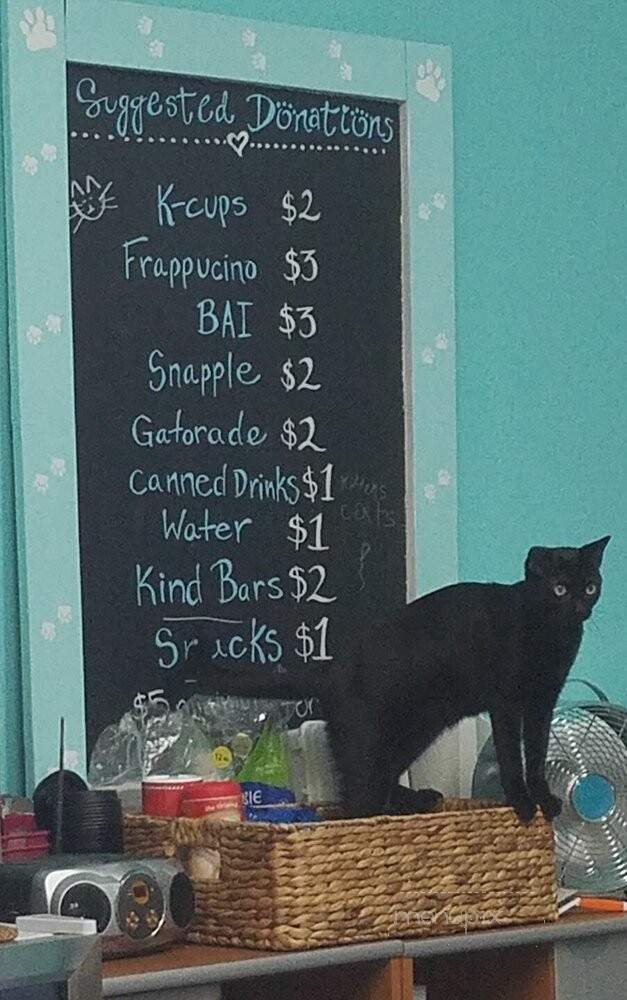 Suggested Donations
K-cups $2
Frappucino $3
BAI $3
Snapple $2
Gatorade $2
Canned Drinks $1
Water $1
Kind Bars $2
Snacks $1
$5
menupix